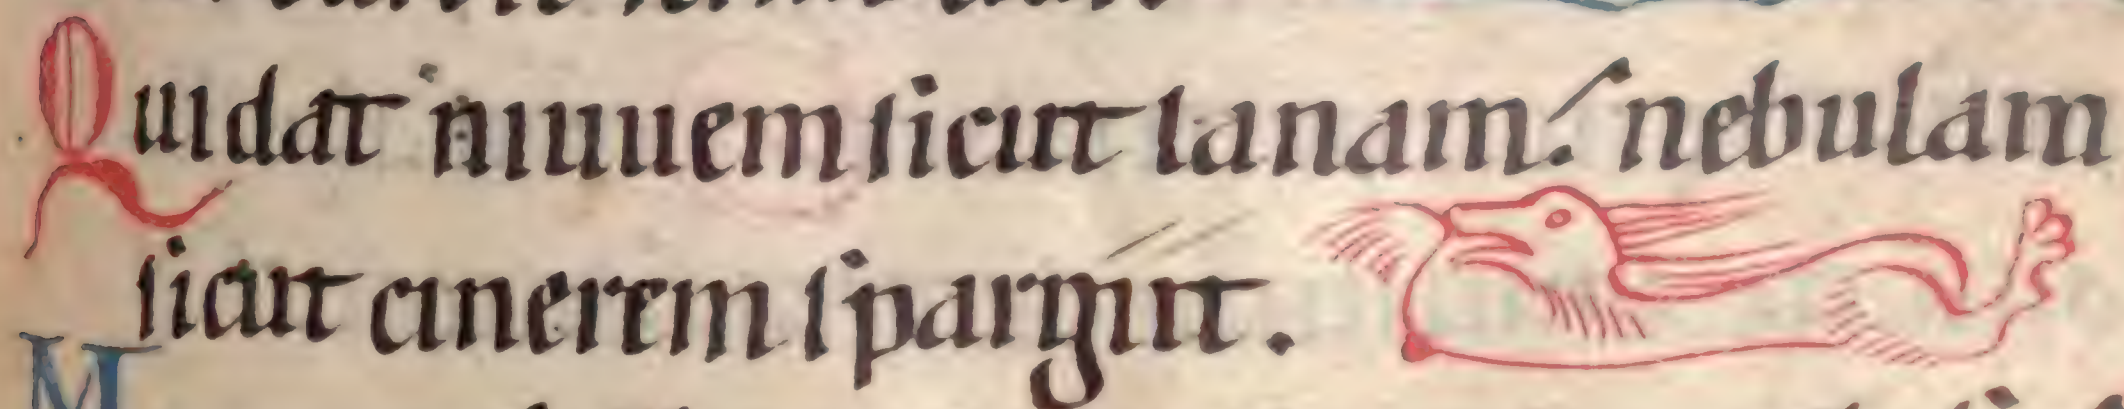 Quidat niuuem sicut lanam: nebulam
sicut cinerem spargit.
M